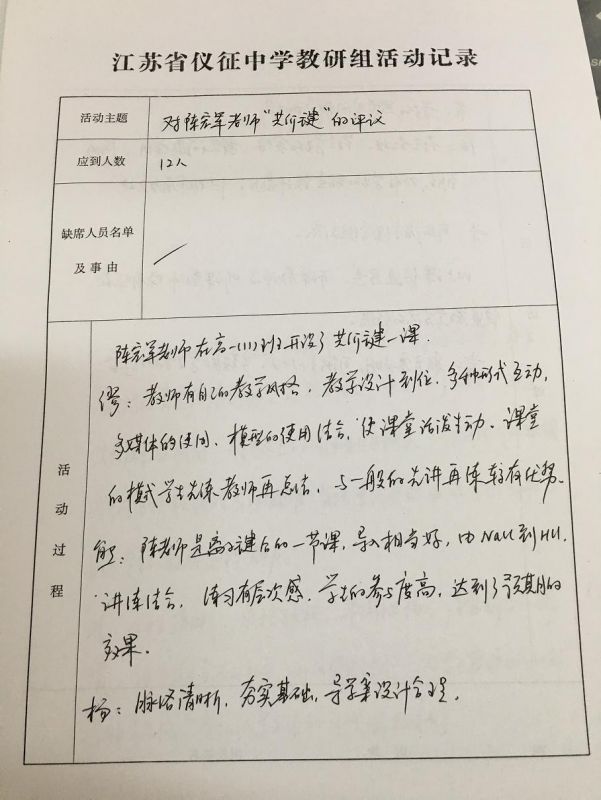 江苏省仪征中学教研组活动记录
活动主题
对陈宏军老师“共价键”的评议
应到人数
12人
缺席人员名单
及事由
活动过程
陈宏军老师在高一(11)班开设了共价键一课.
缪：教师有自己的教学风格，教学设计到位，多种形式互动，
多媒体的使用、模型的使用结合，使课堂活泼生动、课堂
的模式学生先练教师再总结，与一般的先讲再练较有优势.
陈老师是离子键后的一节课，导入相当好，由NaCl到HCl.
讲练结合，练习有层次感，学生的参与度高，达到了预期的
效果.
杨：脉络清晰，夯实基础，导学案设计合理.